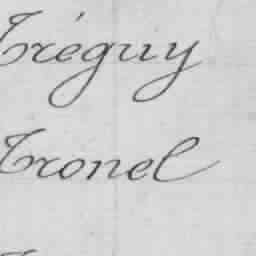 Tréguy
Tronel